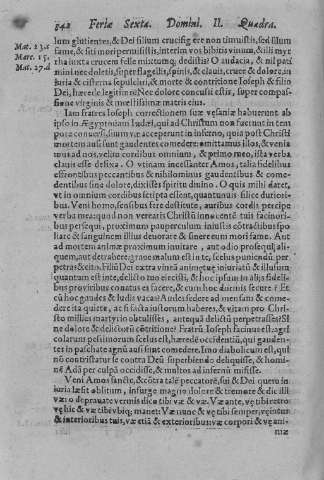 842 Feriæ Sextæ. Domini. II. Quadra.
Mat. 13.
Marc. 15.
Mat. 27.
lum glutientes, & Dei filium crucifigere non timuistis, sed illum
fame, & siti moripermisistis, interim vos bibitis vinum, & illi myr
rha iuxta crucem felle mixtumq; dedistis? O audacia, & nil pati
mini nec doletis, super flagellis, spinis, & clauis, cruce & dolore, in
iuria & cisterna sepulchri, & morte & contritione Ioseph & filio
Dei, hærede legitimo? Nec dolore concussi estis, super compas-
sione virginis & mœstissimæ matris eius.
Iam fratres Ioseph correctionem suæ vesaniæ habuerunt ab
ipso in Ægyptoniam Iudæi, qui ad Christum non fuerunt in tem
pore conuersi, suum væ acceperunt in inferno, quia post Christi
mortem ausi sunt gaudentes comedere: omittamus illos, & venia
mus ad nos, velut cordibus omnium, & primo meo, ista verba
clauis esse defixa. O vtinam inceslater Amos, talia fidelibus
effrontibus peccantibus & nihilominus gaudentibus & come-
dentibus sine dolore, dixisses spiritu diuino. O quis mihi daret,
vt in omnium cordibus scripta essent, quantunuis silice duriori-
bus. Veni homo, sensibus fere destitute, auribus cordis percipe
verba mea: quod non verearis Christū innocentē tuis facinori-
bus persequi, proximum pauperculum iniustis cōtradictibus spo
liare & sanguinem illius deuorare & sinere eum mori fame. Aut
ad mortem animæ proximum inuitare, aut odio prosequi ali-
quem, aut detrahere, grose malum est in te, scelus puniendū per
petras & cito. Filiū Dei extra vineā animę tuę iniuriatū & illusum
quantum est in te, delicto tuo eiecisti, & hoc ipsum in aliis fideli-
bus prouinus conatus es facere, & cum hoc dormis secure? Et
cū hoc gaudes & ludis vacas? Audes sedere ad mensam & come-
dere ita quiete, ac si facta iustorum haberes, & vitam pro Chri-
sto millies martyrio obtulisses, antequā delictū perpetrasses? Si
ne dolore & delictorū cōtritione? Fratrū Ioseph facinus est, agri
colarum pessimorum scelus est, hæredē occidentiū, qui gauden-
tes in paschate agnū ausi sunt comedere. Imo diabolicum est, qui
nū contristatur se contra Deū superbiendo deliquisse, & homi-
nē Adā per culpā occidisse, & multos ad infernū misisse.
Veni Amos sancte, & cōtra tale peccatorē, sui & Dei quero in
iuria læsit oblitum, insurge magno dolore & tremore & dic illi
væ: o deprauate vermis dico tibi væ & væ. Væ ante, vę tibi retro:
vę hic & væ tibi vbiq; manet: Væ nunc & vę tibi semper, vę intus
& interioribus tuis, væ etiā & exterioribus: væ corpori & vę ani-
mæ